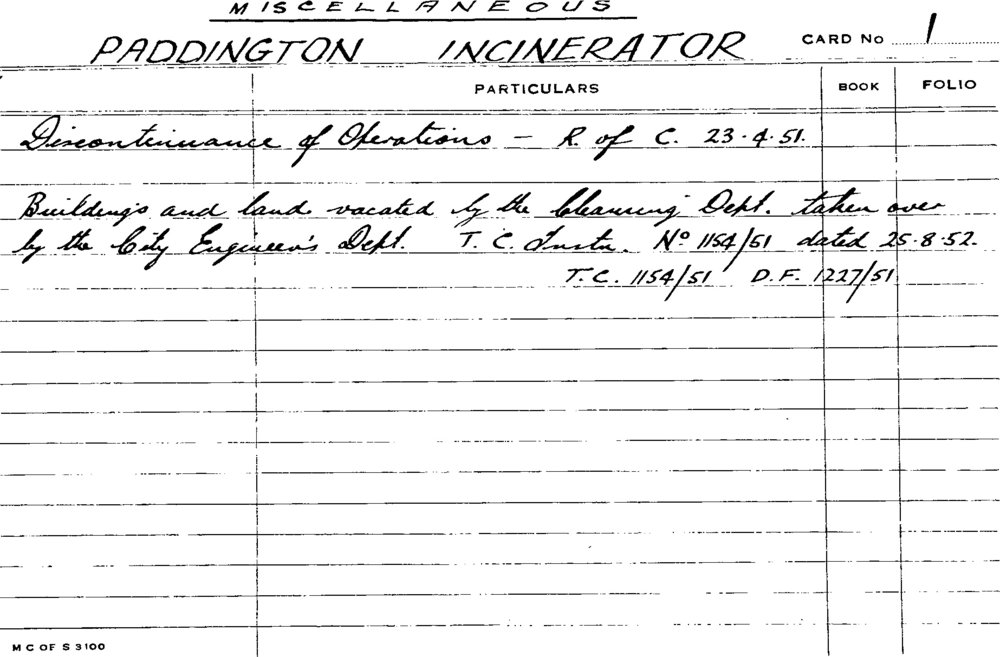 MISCELLANEOUS
PADDINGTON INCINERATOR CARD No 1
PARTICULARS BOOK FOLIO
Discontinuance of Operations — R. of C. 23.4.51.
Buildings and land vacated by the Cleansing Dept. taken over
by the City Engineer's Dept. T. C. Instn. No 1154/51 dated 25.8.52.
T.C. 1154/51 D.F. 1227/51
M C OF S 3100